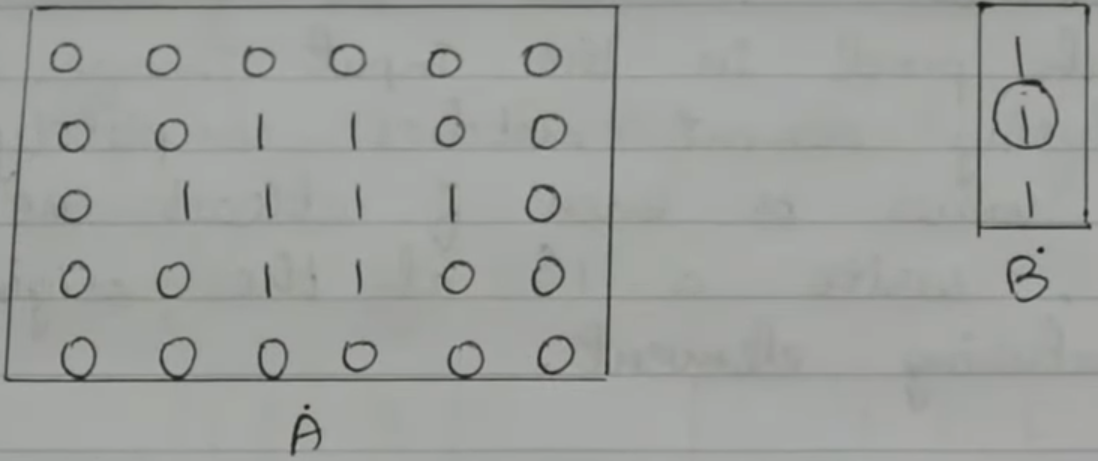 0 0 0 0 0 0
0 0 1 1 0 0
0 1 1 1 1 0
0 0 1 1 0 0
0 0 0 0 0 0
A
1
1
1
B